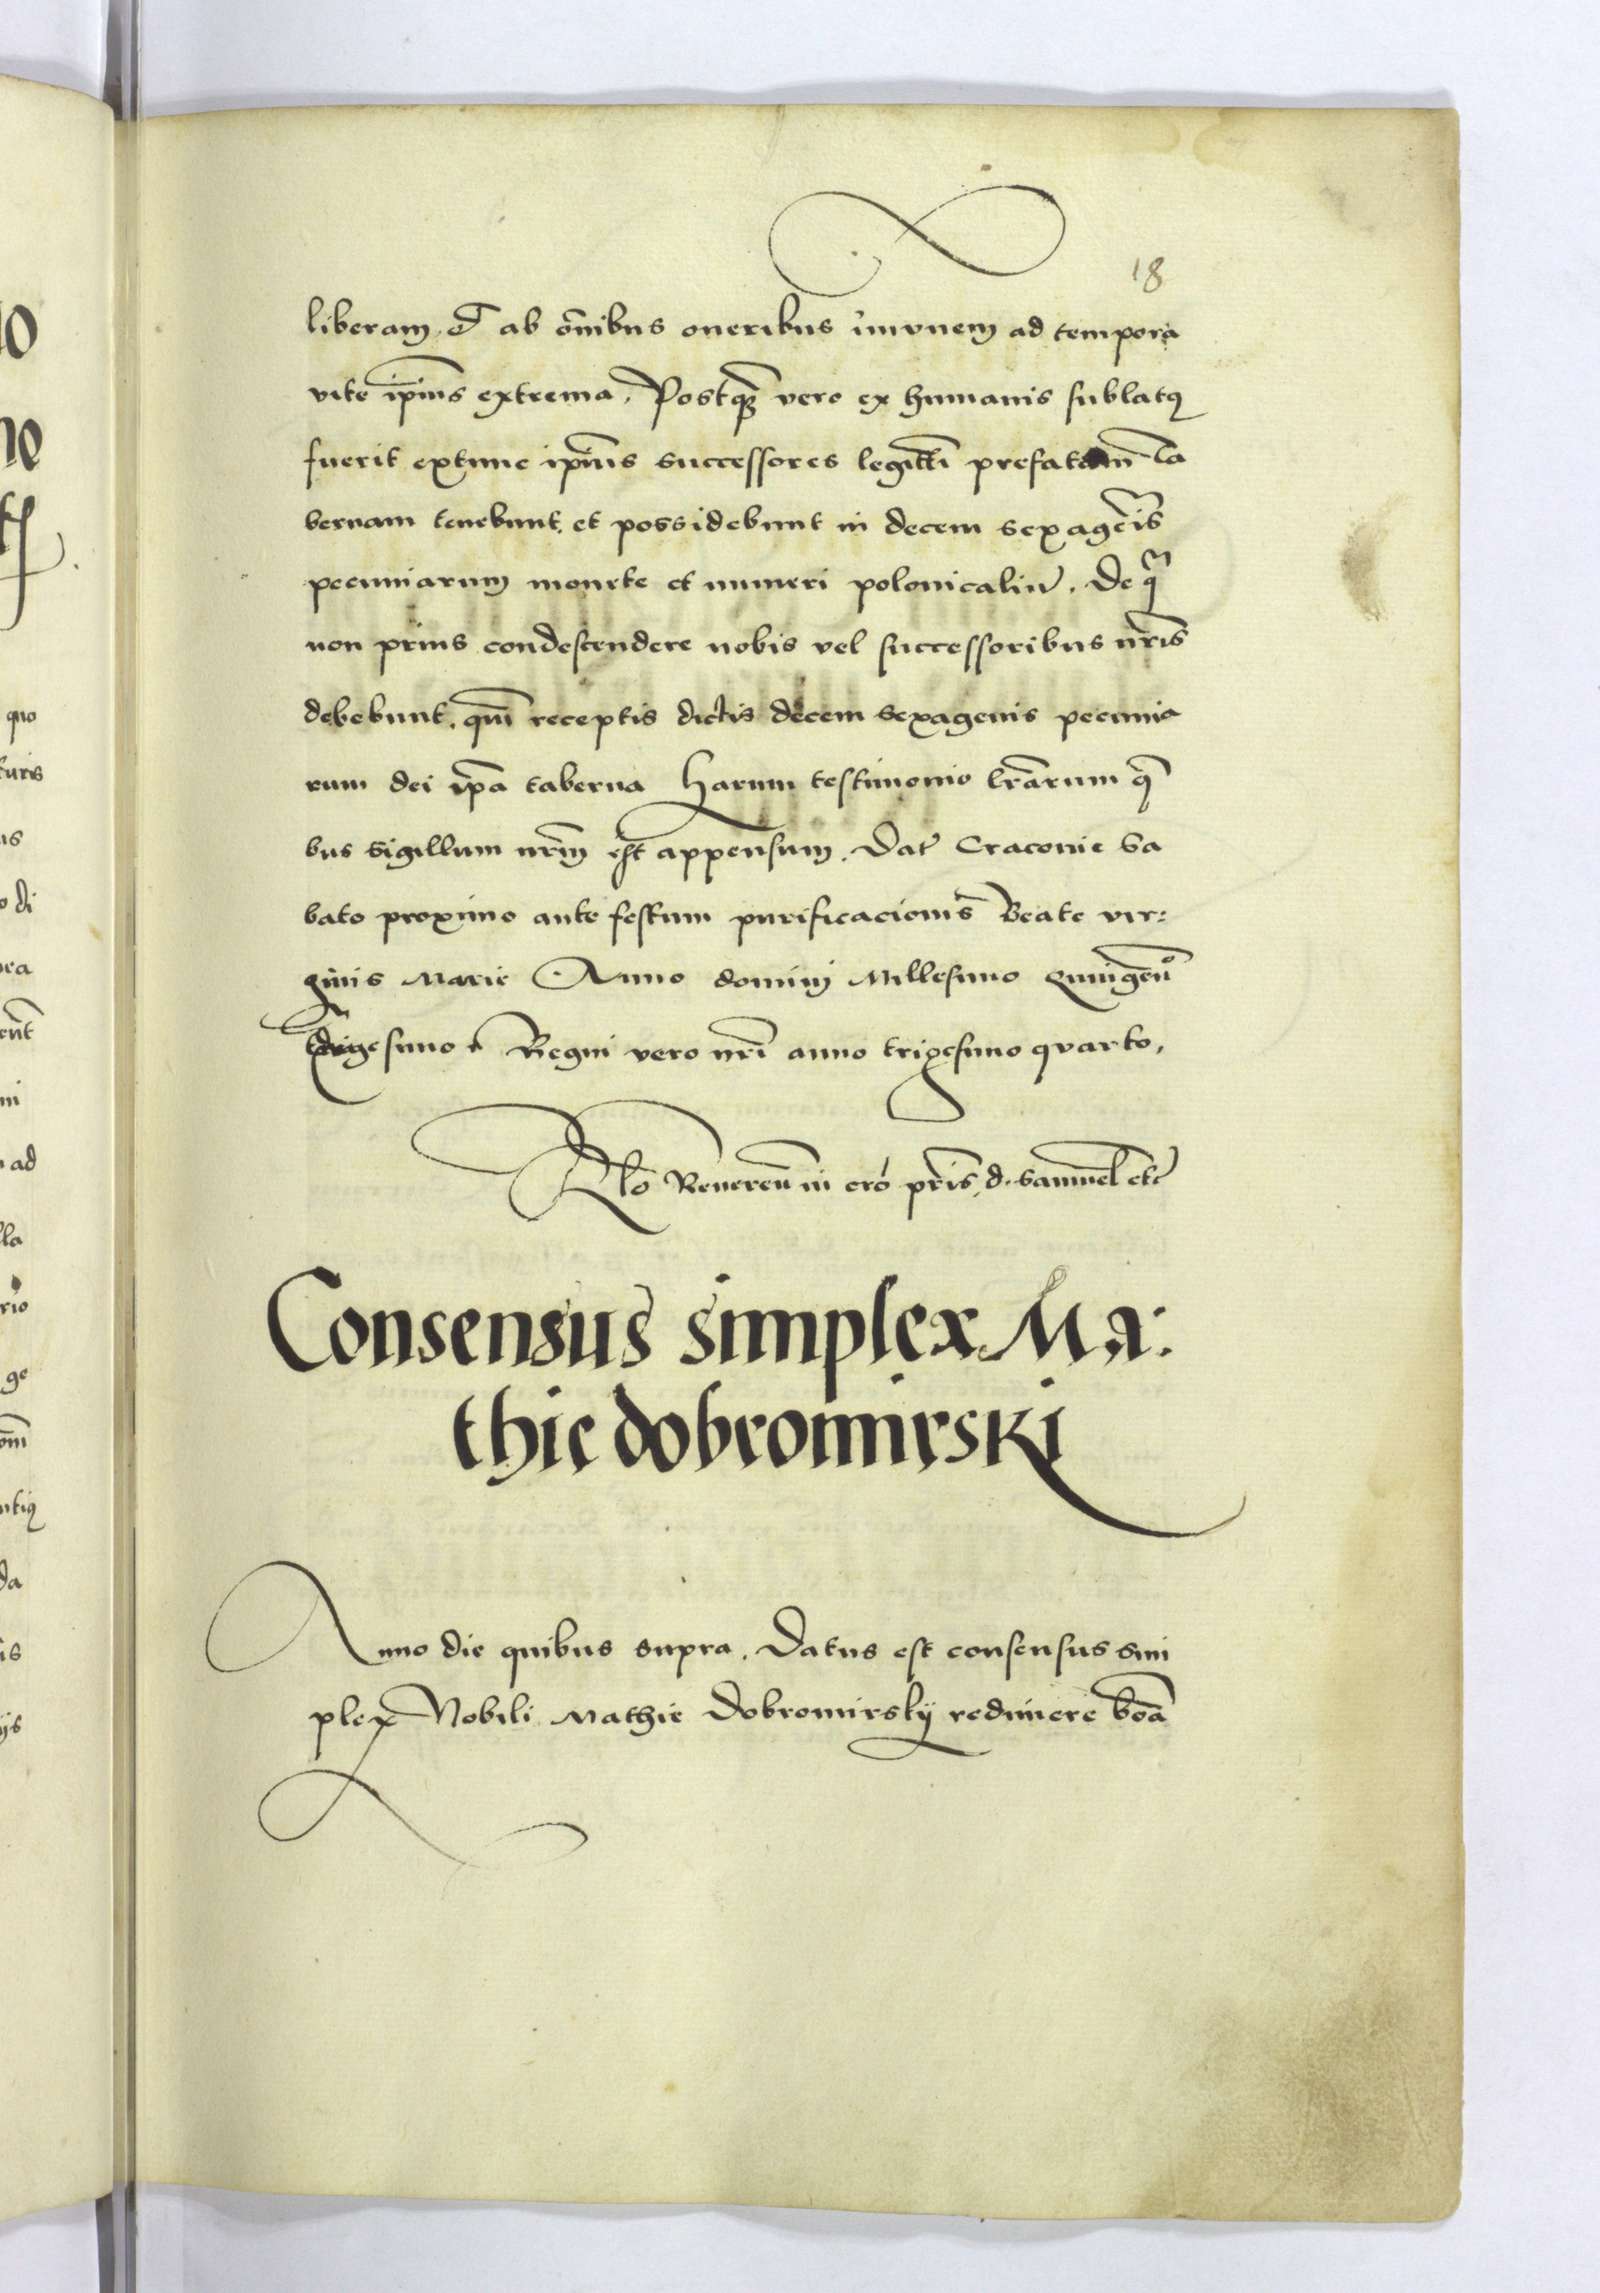 18
liberam et ab o̅nibus oneribus i̅mvnem ad tempora
vite ip̅ius extrema. Postq̅ vero ex humanis sublatꝰ
fuerit extunc ip̅ius successores legitti̅ prefatam ta
bernam tenebunt et possidebunt in decem sexage̅is
pecuniarum monete et numeri polonicaliu̅. De q̅
non prius condescendere nobis vel successoribus nr̅is
debebunt, qui̅ receptis dictis decem sexagenis pecunia
rum dei ip̅a taberna Harum testimonio lr̅arum q̅
bus sigillum nr̅m est appensum. Dat̅ Cracovie Sa
bato proximo ante festum purificacionis Beate vir:
ginis Marie Anno domini Millesimo Quingen̅o
trigesimo Regni vero nr̅i anno trigesimo qvarto.
Rlo̅ Reueren̅ in cro̅ pr̅is d. Samuel etc̅
Consensus simplex Ma:
thie dobromirski
Anno die quibus supra. Datus est consensus sim
plex Nobili Mathie Dobromirskij redimere bo̅a